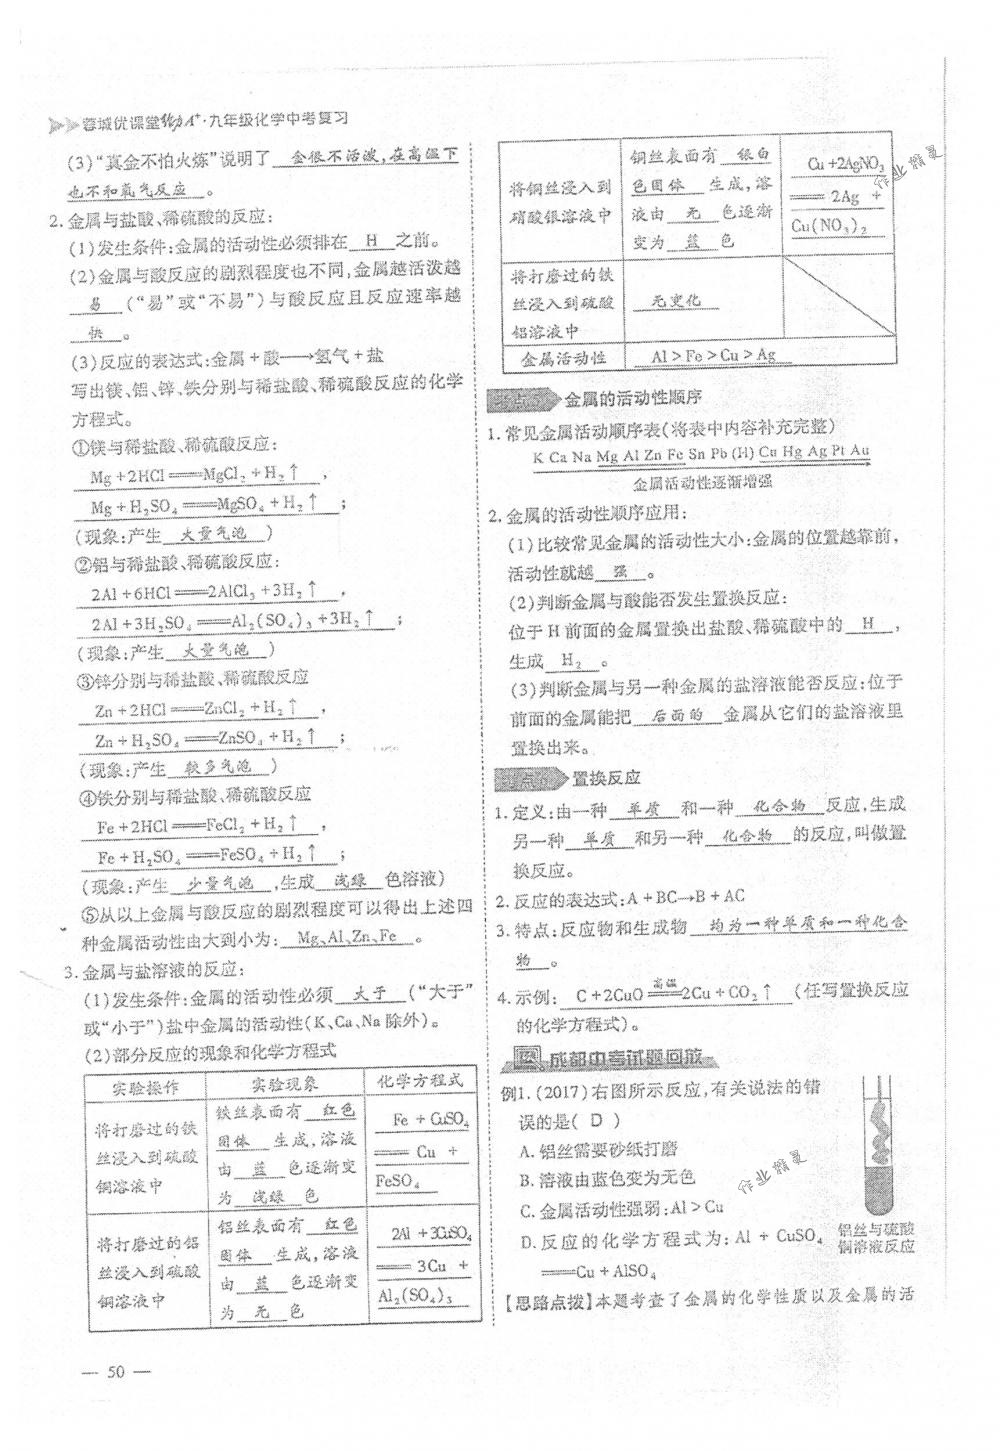 蓉城优课堂给力A⁺·九年级化学中考复习
(3)“真金不怕火炼”说明了 金很不活泼,在高温下
也不和氧气反应 。
2.金属与盐酸、稀硫酸的反应:
(1)发生条件:金属的活动性必须排在 H 之前。
(2)金属与酸反应的剧烈程度也不同,金属越活泼越
易 (“易”或“不易”)与酸反应且反应速率越
快 。
(3)反应的表达式:金属+酸⟶氢气+盐
写出镁、铝、锌、铁分别与稀盐酸、稀硫酸反应的化学
方程式。
①镁与稀盐酸、稀硫酸反应:
Mg+2HCl═MgCl₂+H₂↑ ,
Mg+H₂SO₄═MgSO₄+H₂↑ ;
(现象:产生 大量气泡 )
②铝与稀盐酸、稀硫酸反应:
2Al+6HCl═2AlCl₃+3H₂↑ ,
2Al+3H₂SO₄═Al₂(SO₄)₃+3H₂↑ ;
(现象:产生 大量气泡 )
③锌分别与稀盐酸、稀硫酸反应
Zn+2HCl═ZnCl₂+H₂↑ ,
Zn+H₂SO₄═ZnSO₄+H₂↑ ;
(现象:产生 较多气泡 )
④铁分别与稀盐酸、稀硫酸反应
Fe+2HCl═FeCl₂+H₂↑ ,
Fe+H₂SO₄═FeSO₄+H₂↑ ;
(现象:产生 少量气泡 ,生成 浅绿 色溶液)
⑤从以上金属与酸反应的剧烈程度可以得出上述四
种金属活动性由大到小为: Mg、Al、Zn、Fe 。
3.金属与盐溶液的反应:
(1)发生条件:金属的活动性必须 大于 (“大于”
或“小于”)盐中金属的活动性(K、Ca、Na除外)。
(2)部分反应的现象和化学方程式
实验操作 实验现象 化学方程式
将打磨过的铁 铁丝表面有 红色 Fe+CuSO₄
丝浸入到硫酸 固体 生成,溶液 ═ Cu +
铜溶液中 由 蓝 色逐渐变 FeSO₄
为 浅绿 色
将打磨过的铝 铝丝表面有 红色 2Al+3CuSO₄
丝浸入到硫酸 固体 生成,溶液 ═ 3Cu +
铜溶液中 由 蓝 色逐渐变 Al₂(SO₄)₃
为 无 色
— 50 —
将铜丝浸入到 铜丝表面有 银白 Cu+2AgNO₃
硝酸银溶液中 色固体 生成,溶 ═ 2Ag +
液由 无 色逐渐 Cu(NO₃)₂
变为 蓝 色
将打磨过的铁
丝浸入到硫酸 无变化
铝溶液中
金属活动性 Al>Fe>Cu>Ag
考点5 金属的活动性顺序
1.常见金属活动顺序表(将表中内容补充完整)
K Ca Na Mg Al Zn Fe Sn Pb (H) Cu Hg Ag Pt Au
金属活动性逐渐增强
2.金属的活动性顺序应用:
(1)比较常见金属的活动性大小:金属的位置越靠前,
活动性就越 强 。
(2)判断金属与酸能否发生置换反应:
位于H前面的金属置换出盐酸、稀硫酸中的 H ,
生成 H₂ 。
(3)判断金属与另一种金属的盐溶液能否反应:位于
前面的金属能把 后面的 金属从它们的盐溶液里
置换出来。
考点6 置换反应
1.定义:由一种 单质 和一种 化合物 反应,生成
另一种 单质 和另一种 化合物 的反应,叫做置
换反应。
2.反应的表达式:A+BC→B+AC
3.特点:反应物和生成物 均为一种单质和一种化合
物 。
4.示例: C+2CuO═高温═2Cu+CO₂↑ (任写置换反应
的化学方程式)。
成都中考试题回放
例1.(2017)右图所示反应,有关说法的错
误的是( D )
A.铝丝需要砂纸打磨
B.溶液由蓝色变为无色
C.金属活动性强弱:Al>Cu
D.反应的化学方程式为:Al + CuSO₄
═Cu+AlSO₄
铝丝与硫酸
铜溶液反应
【思路点拨】本题考查了金属的化学性质以及金属的活
作业精灵
作业精灵